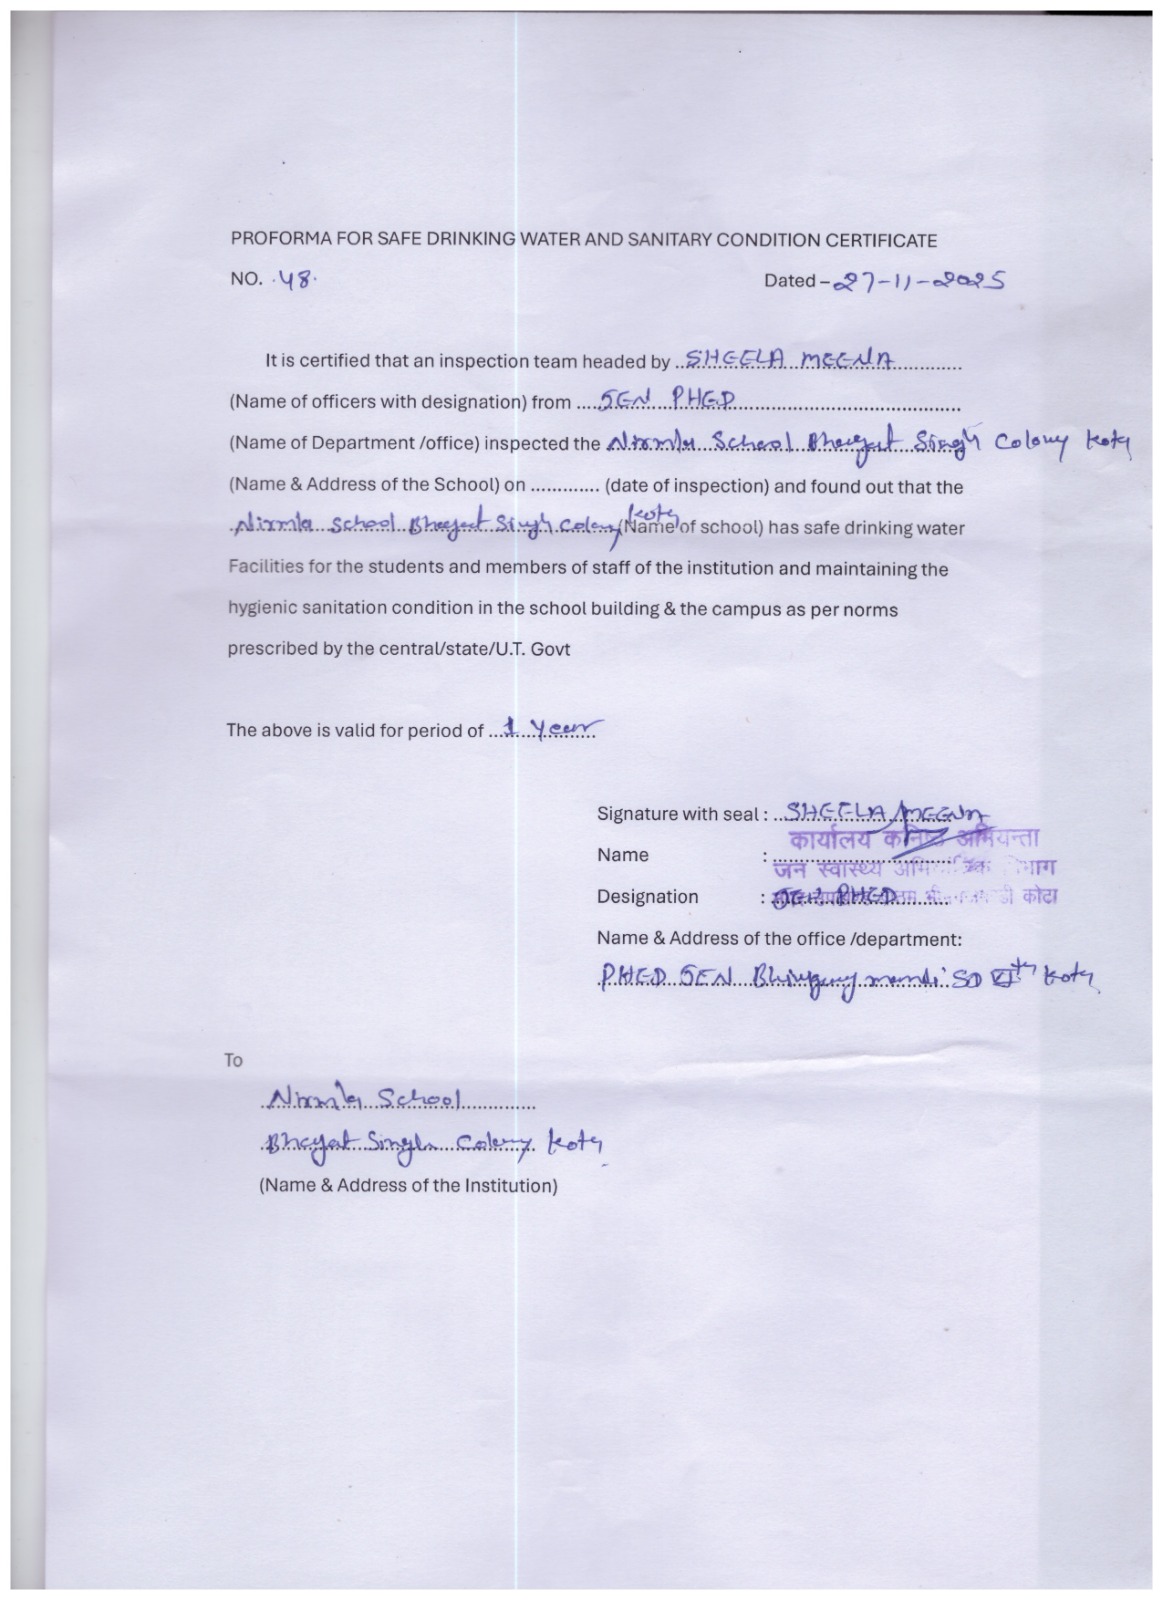 PROFORMA FOR SAFE DRINKING WATER AND SANITARY CONDITION CERTIFICATE
NO. 48. Dated - 27-11-2025
It is certified that an inspection team headed by SHEELA MEENA
(Name of officers with designation) from JEN PHED
(Name of Department /office) inspected the Nirmla School Bhagat Singh Colony Kota
(Name & Address of the School) on ............. (date of inspection) and found out that the
Nirmla School Bhagat Singh Colony Kota (Name of school) has safe drinking water
Facilities for the students and members of staff of the institution and maintaining the
hygienic sanitation condition in the school building & the campus as per norms
prescribed by the central/state/U.T. Govt
The above is valid for period of ...1 Year
Signature with seal : SHEELA MEENA
कार्यालय कनिष्ठ अभियन्ता
Name :
जन स्वास्थ्य विभाग
Designation : JEN PHED
कोटा
Name & Address of the office /department:
PHED JEN mandi SD Kota
To
Nirmla School
Bhagat Singh Colony Kota
(Name & Address of the Institution)